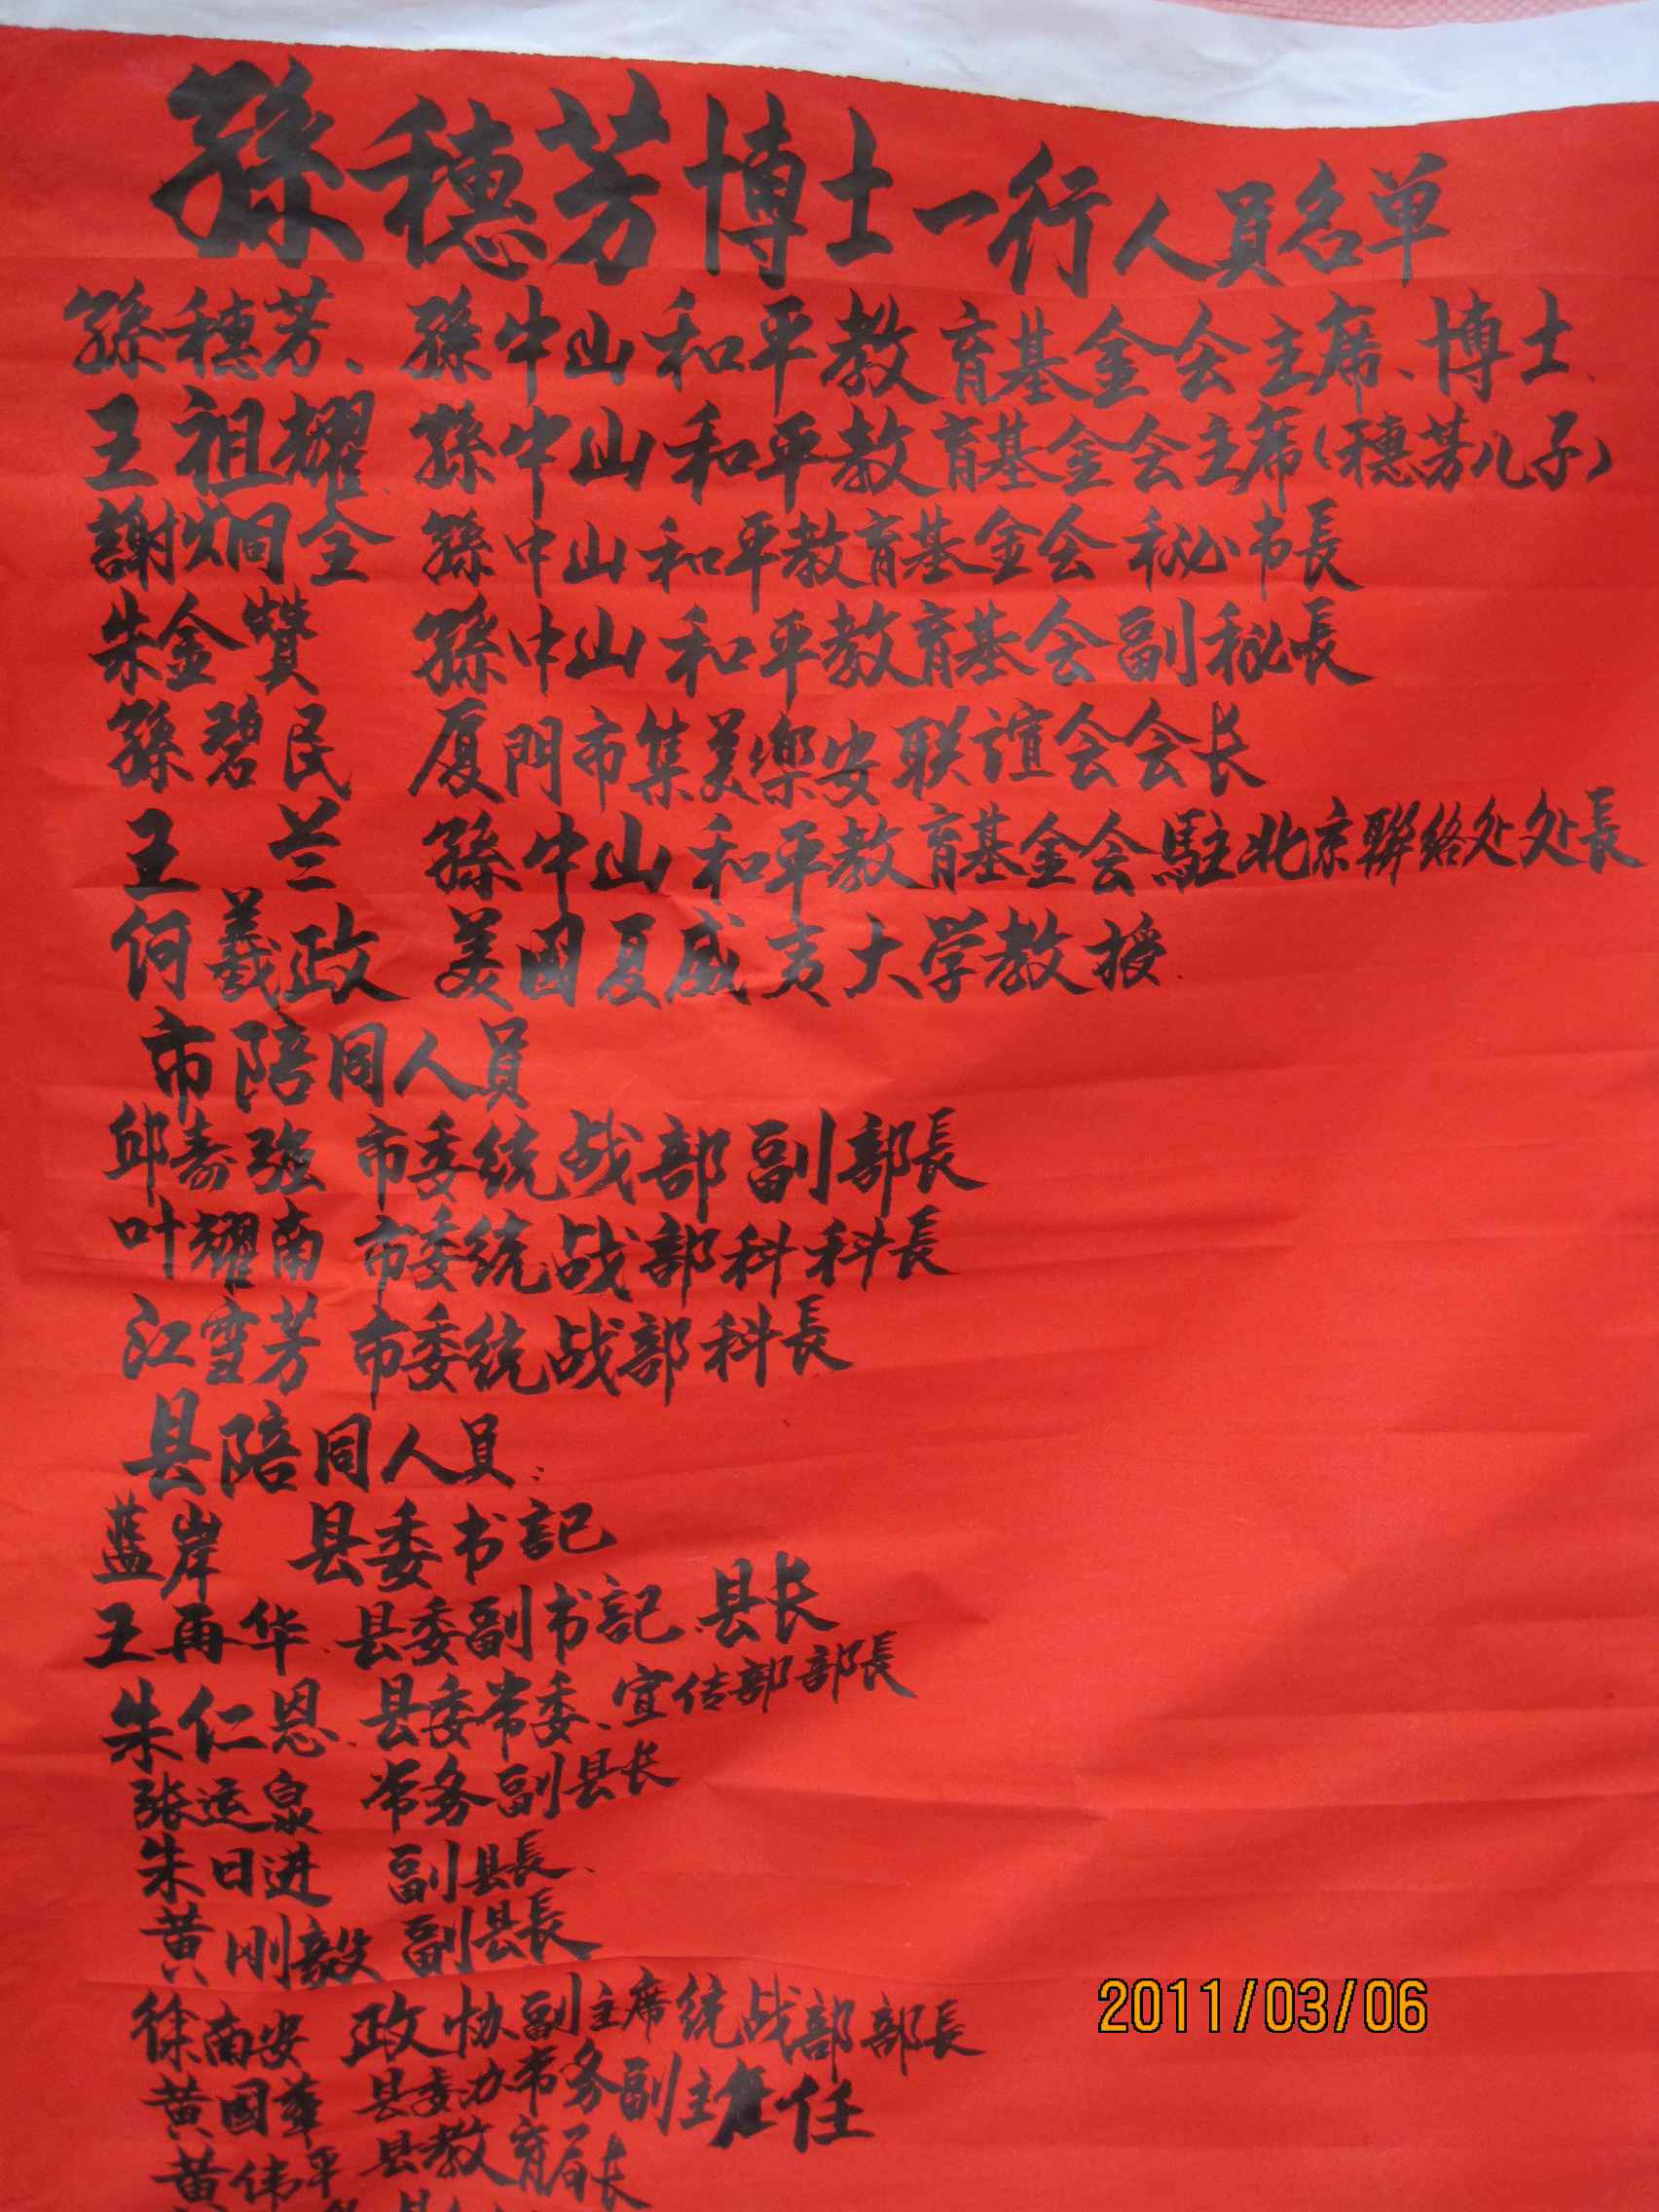 孫穗芳博士一行人員名单
孫穗芳、孫中山和平教育基金会主席、博士、
王祖耀 孫中山和平教育基金会主席(穗芳儿子)
謝炯全 孫中山和平教育基金会秘书長
朱金贊 孫中山和平教育基会副秘長
孫碧民 厦門市集美樂安联谊会会长
王兰 孫中山和平教育基金会駐北京聯络处处長
何羲政 美國夏威夷大学教授
市陪同人員
邱壽強 市委统战部副部長
叶耀南 市委统战部科科長
江雪芳 市委统战部科長
县陪同人員:
蓝岸 县委书記
王再华 县委副书記、县长
朱仁恩 县委常委、宣传部部長
张运泉 常务副县长
朱日进 副县長、
黄刚毅 副县長
徐南安 政协副主席统战部部長
黄國華 县委办常务副主任
黄伟平 县教育局长
2011/03/06